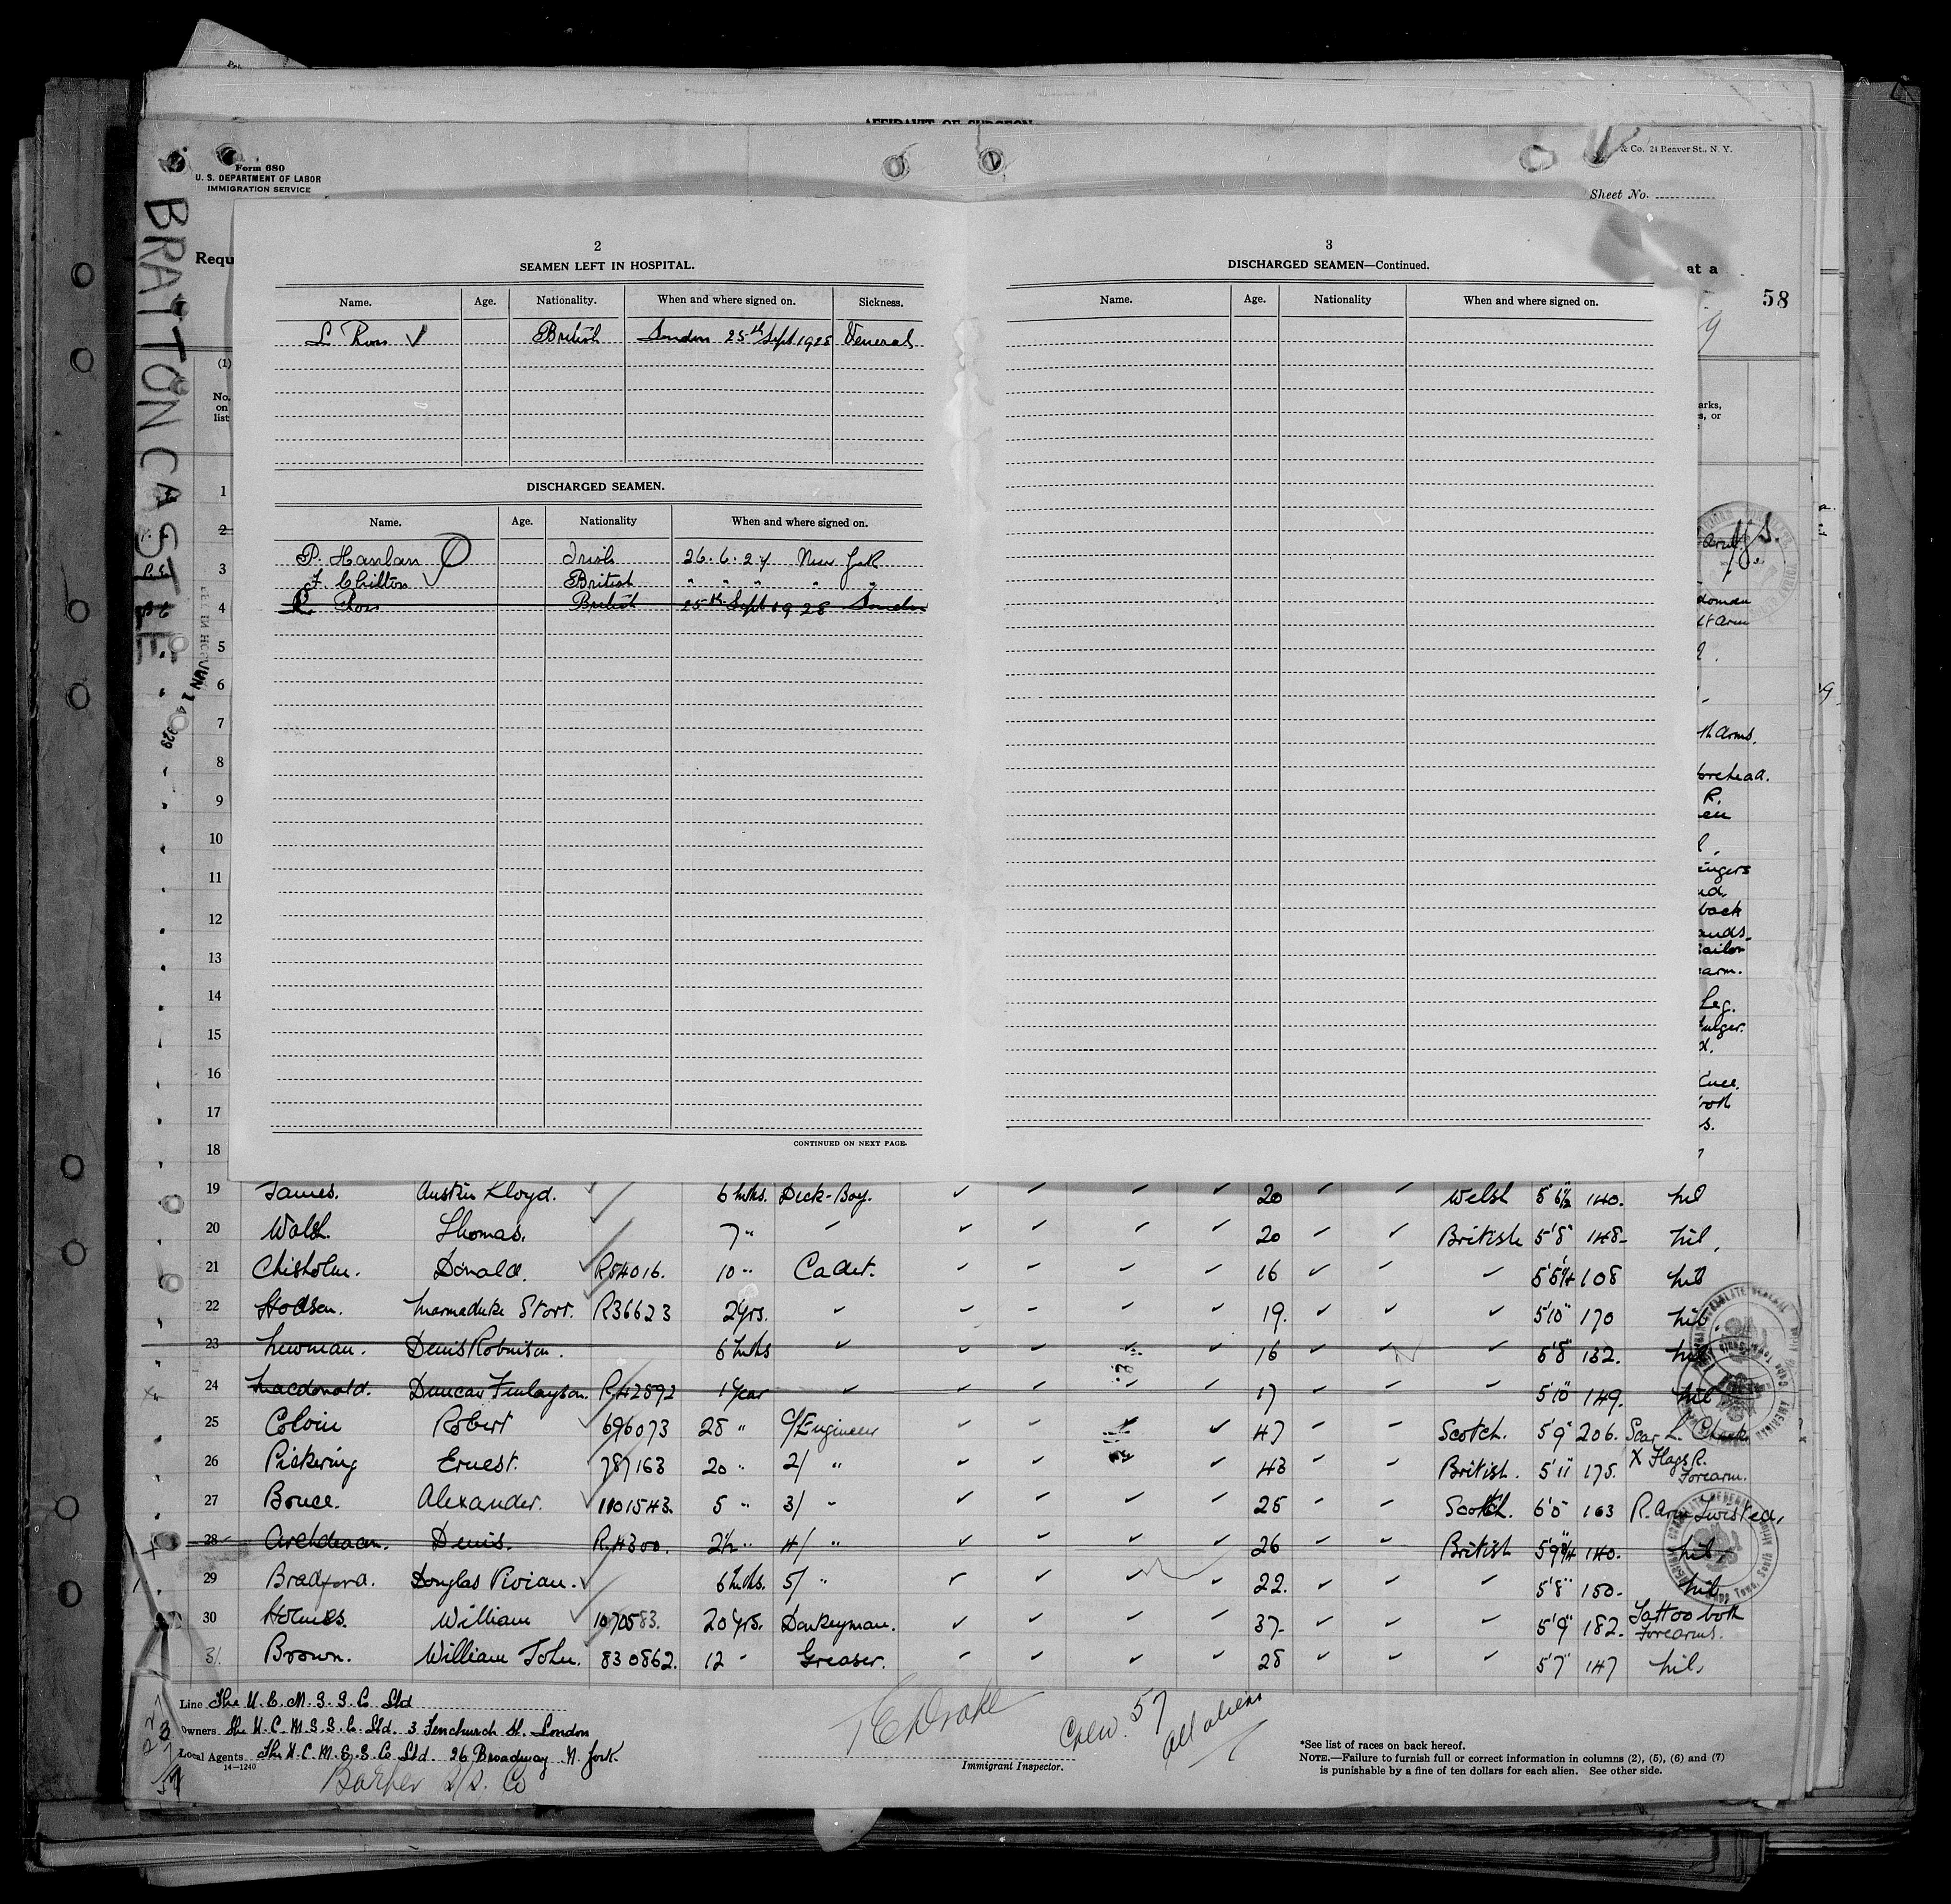 AFFIDAVIT OF SURGEON
Form 680
U. S. DEPARTMENT OF LABOR
IMMIGRATION SERVICE
& Co. 24 Beaver St., N. Y.
Sheet No.
BRATTON CASTLE
Requ
at a
58
2
SEAMEN LEFT IN HOSPITAL.
Name. Age. Nationality. When and where signed on. Sickness.
L Ross British London 25th Sept 1928 Veneral
DISCHARGED SEAMEN.
Name. Age. Nationality When and where signed on.
P. Hanlan Irish 26.6.24 New York
F. Chilton British " " " " "
L. Ross British 25th Sept 1928 London
CONTINUED ON NEXT PAGE.
3
DISCHARGED SEAMEN—Continued.
Name. Age. Nationality When and where signed on.
(1)
No. on list
arks,
s, or
1
2
3
4
5
6
7
8
9
10
11
12
13
14
15
16
17
18
JUN 14 1929
lt arm
th arms.
forehead.
R.
ingers
back
ands.
sailor
arm.
Leg.
Knee.
19 James. Austin Lloyd. 6 Mths. Deck-Boy. 20 Welsh 5'6½ 140. Nil
20 Walsh. Thomas. 7 " 20 British 5'8" 148- Nil,
21 Chisholm. Donald. R54016. 10 " Cadet. 16 5'5¼ 108 Nil
22 Hodson. Marmaduke Storr. R36623 2 Yrs. 19. 5'10" 170 Nil.
23 Newman. Denis Robinson. 6 Mths 16 5'8" 132. Nil
24 Macdonald. Duncan Finlayson. R42892 1 Year 17 5'10" 149. Nil
25 Colvin Robert 696073 28 " C/Engineer 47 Scotch. 5'9" 206. Scar L. Cheek
26 Pickering Ernest. 787163 20 " 2/ " 43 British. 5'11" 175. X Flags R. Forearm.
27 Bruce. Alexander. 1101543. 5 " 3/ " 25 Scotch. 6'0" 163 R. Arm Twisted.
28 Archdeacon. Denis. R.4300. 2½ " 4/ " 26 British 5'9¾ 140. Nil.
29 Bradford. Douglas Vivian. 6 Mths. 5/ " 22. 5'8" 150- Nil.
30 Holmes. William 1070583. 20 Yrs. Donkeyman. 37- 5'9" 182. Tattoo both Forearms.
31. Brown. William John. 830862. 12 " Greaser. 28 5'7" 147 Nil.
Line The U.C.M.S.S.Co Ltd
Owners The U.C.M.S.S.Co. Ltd. 3 Fenchurch St. London
Local Agents The U.C.M.S.S.Co Ltd. 26 Broadway N. York.
14—1240
Barber S/S. Co
T E Drake
Immigrant Inspector.
Crew. 57
all aliens
*See list of races on back hereof.
NOTE.—Failure to furnish full or correct information in columns (2), (5), (6) and (7)
is punishable by a fine of ten dollars for each alien. See other side.